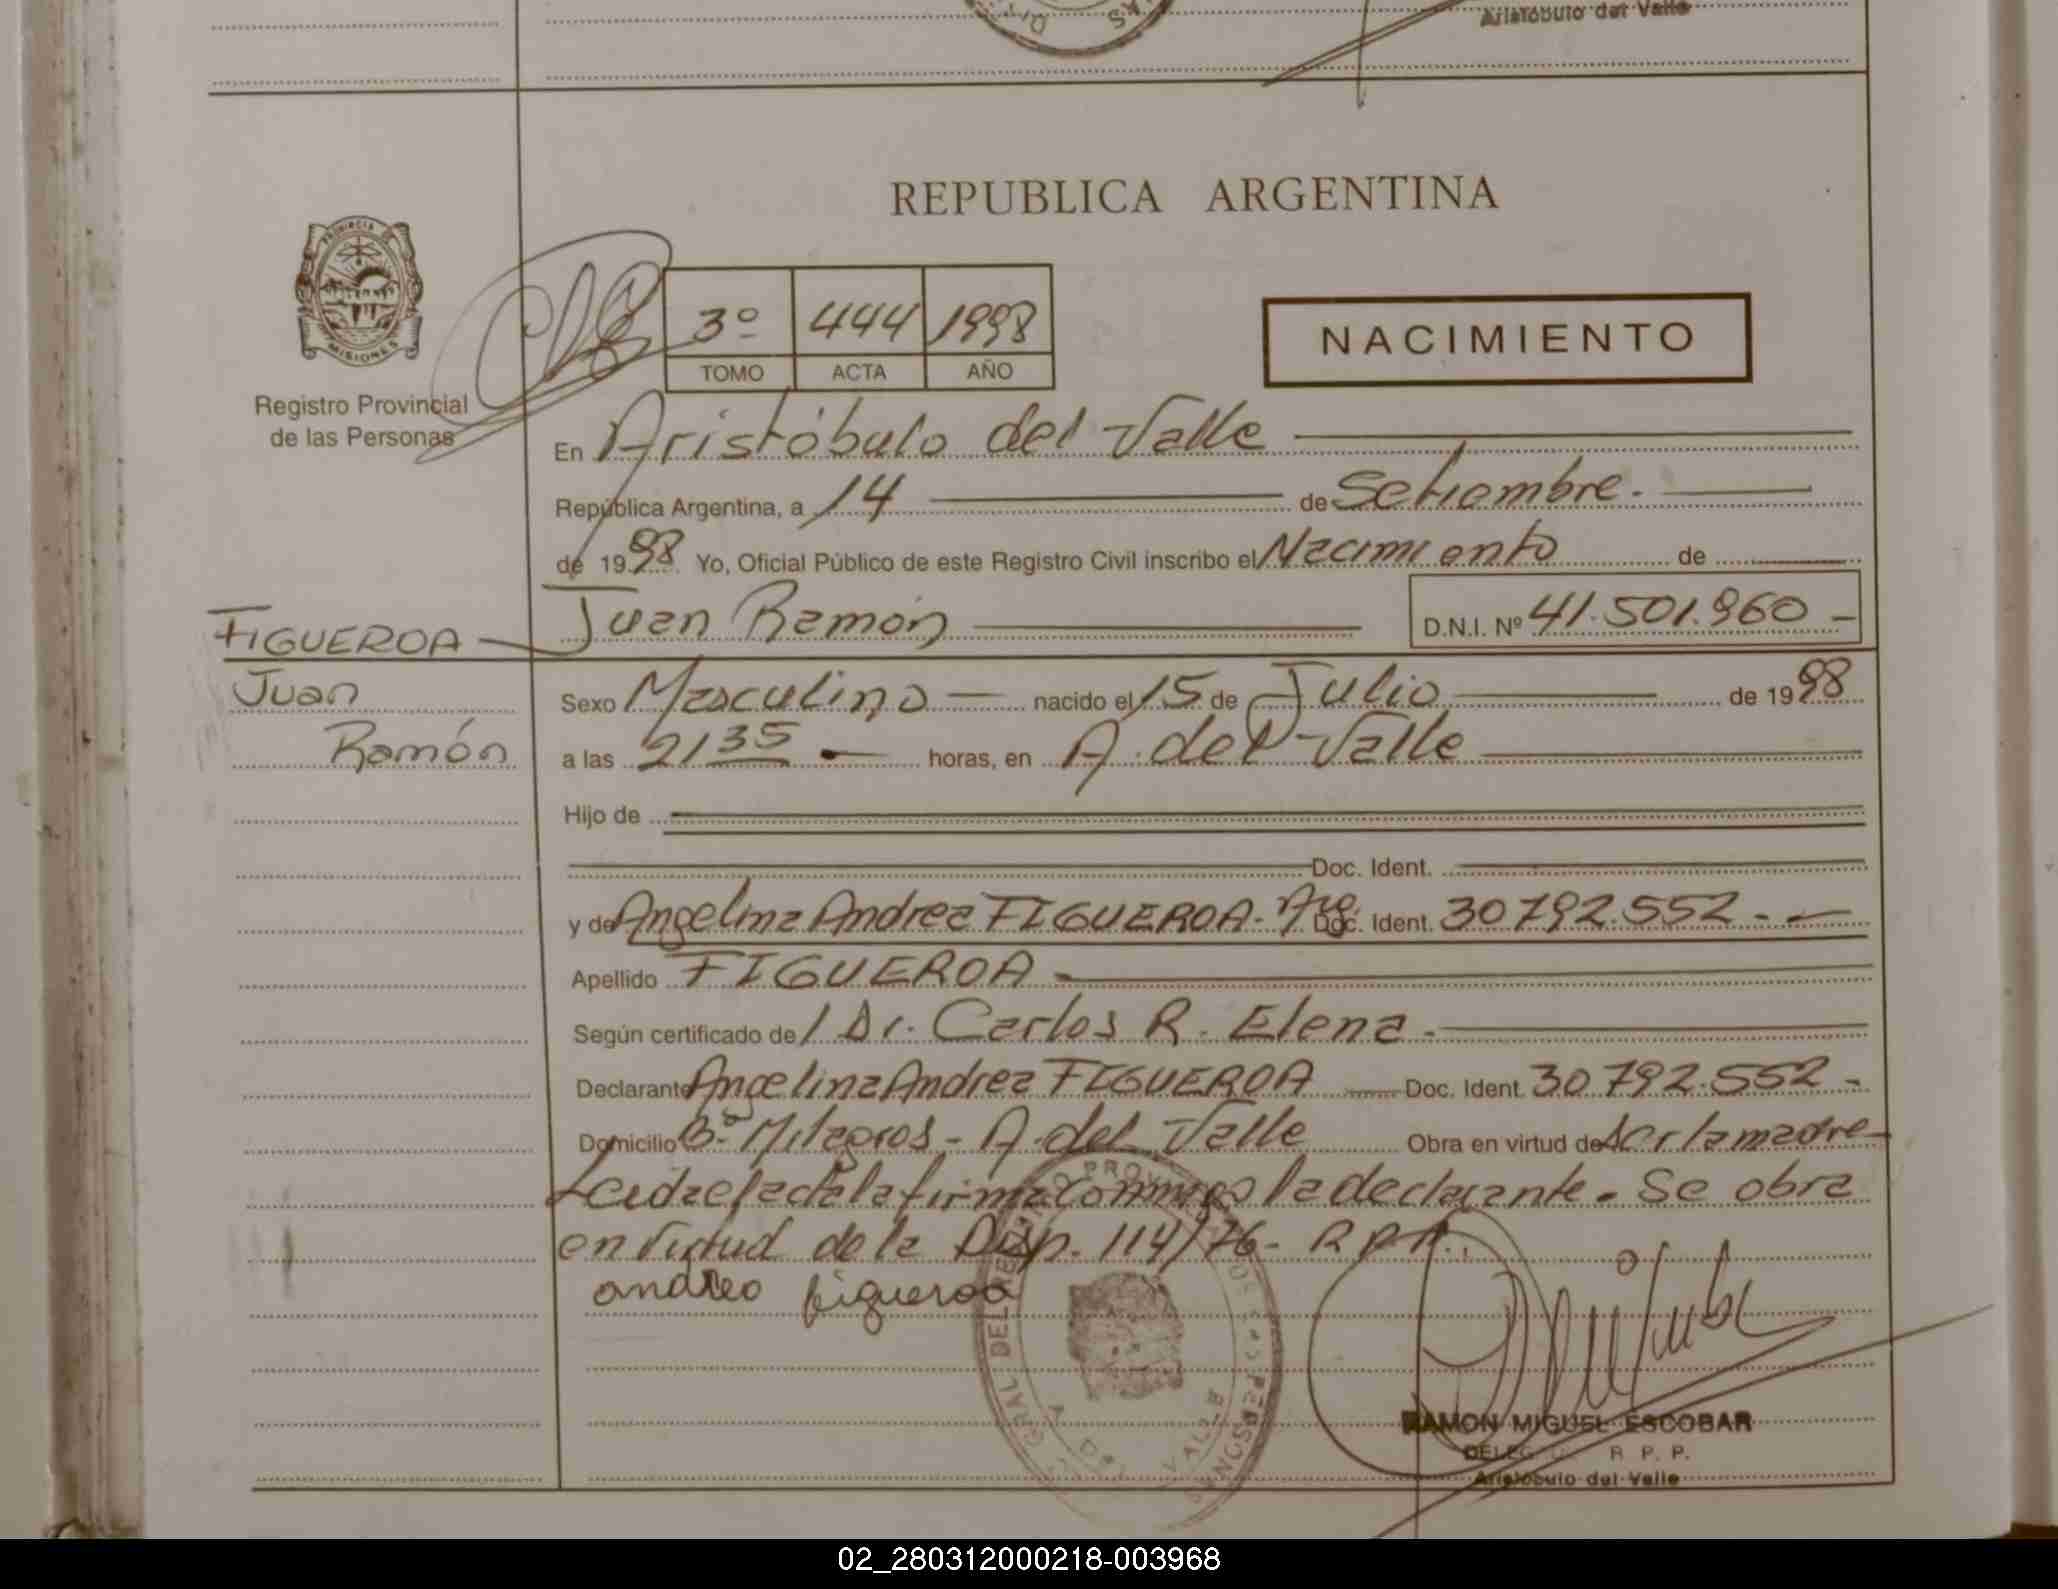 Aristóbulo del Valle
REPUBLICA ARGENTINA
PROVINCIA DE
MISIONES
Registro Provincial
de las Personas
3º 444 1998
TOMO ACTA AÑO
NACIMIENTO
En Aristóbulo del Valle
República Argentina, a 14 de Setiembre.
de 1998 Yo, Oficial Público de este Registro Civil inscribo el Nacimiento de
FIGUEROA Juan Ramón D.N.I. Nº 41.501.960 -
Juan
Ramón
Sexo Masculino nacido el 15 de Julio de 1998
a las 21 35 horas, en A. del Valle
Hijo de
Doc. Ident.
y de Angelina Andrea FIGUEROA - Arg. Doc. Ident. 30 792.552 -
Apellido FIGUEROA -
Según certificado de Dr. Carlos R. Elena -
Declarante Angelina Andrea FIGUEROA Doc. Ident. 30 792.552 -
Domicilio Bº Milagros - A. del Valle Obra en virtud de ser la madre
Leida el acta la firma conmigo la declarante. Se obra
en virtud de la Disp. 114/76 -
andrea figueroa
RAMON MIGUEL ESCOBAR
R. P. P.
Aristobulo del Valle
02_280312000218-003968